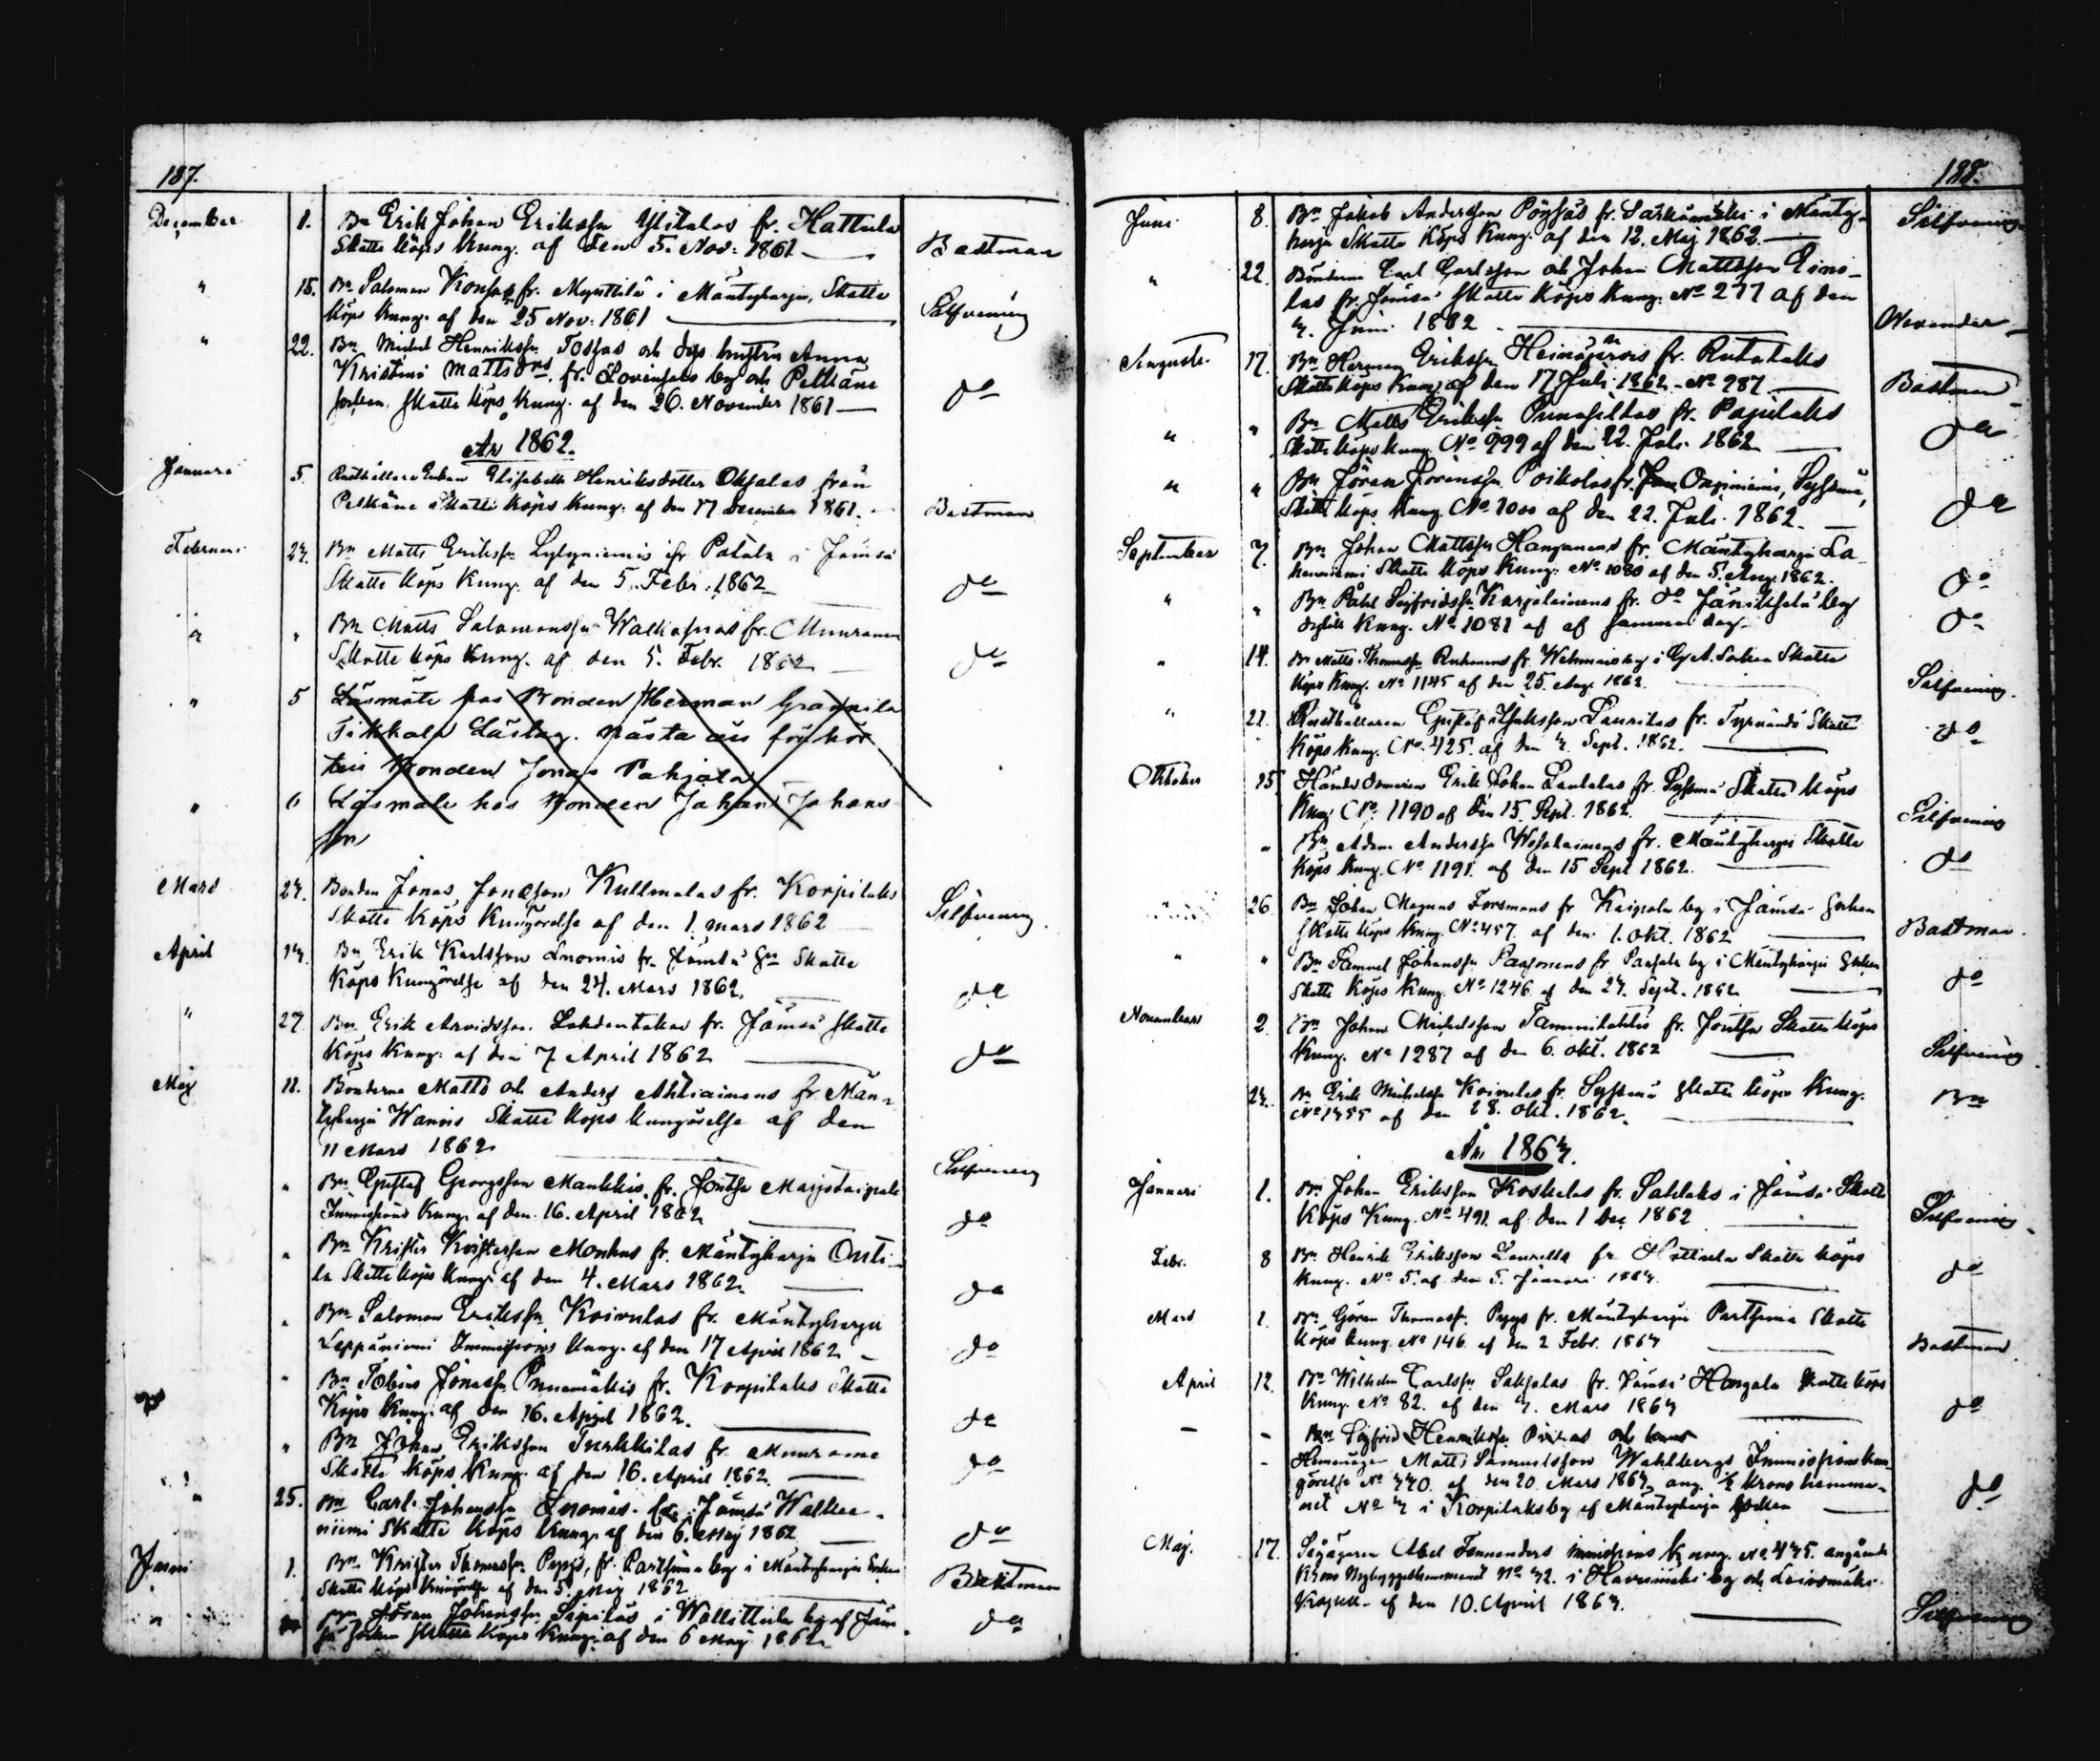 187.
December 1. Bn Erik Johan Eriksson Ylitalos fr. Hattula
Skatte köps kung. af den 5. Nov: 1861 Bastman
" 15. Bn Salomon Konsas fr. Mynttilä i Mäntyharju, Skatte
köps kung. af den 25 Nov. 1861 Silfvening
" 22. Bn Michel Henriksson Tossas och dess hustru Anna
Kristini Mattsdrs fr. Lovensalo by och Pelkäne
socken, Skatte köps kung. af den 26. November 1861 do
År 1862.
Januari 5. Rusthållare Enkan Elisabeth Henriksdotter Oksalas från
Pelkäne Skatte köps kung. af den 17 December 1861. Bastman
Februari 23. Bn Matts Eriksson Lylyniemis fr Patala i Jämsä
Skatte köps kung. af den 5. Febr. 1862 do
" " Bn Matts Salomonsson fr. Muurame
Skatte köps kung. af den 5. Febr. 1862 do
" 5 Läsmöte hos Bonden Herman Grannila
Tikkala Läslag. nästa års förhör
hos Bonden Jonas Pahjola
" 6 Läsmöte hos Bonden Johan Johans
son
Mars 23. Bonden Jonas Jonasson Kullmalas fr. Korpilaks
Skatte köps kungörelse af den 1. mars 1862 Silfvening
April 13. Bn Erik Karlsson Luomis fr. Jämsä Sn Skatte
köps kungörelse af den 24. Mars 1862. do
" 27. Bn Erik Arvidsson Lahdentakas fr. Jämsä Skatte
köps kung. af den 7 April 1862 do
Maj 11. Bönderne Matts och Anders Ahtiainens fr. Män-
tyharju Wanois Skatte köps kungörelse af den
11 Mars 1862 Silfvening
" Bn Gustaf Georgsson Maukkis fr. Joutsa Marjotaipale
Immissions kung. af den 16. April 1862 do
" Bn Krister Kristersson Monkus fr. Mäntyharju Outi-
la Skatte köps kung. af den 4. Mars 1862. do
" Bn Salomon Eriksson Koivulas fr. Mäntyharju
Leppäniemi Immissions kung. af den 17 April 1862 do
" Bn Tobias Jonasson Puuamäkis fr. Korpilaks Skatte
köps kung. af den 16. April 1862. do
" Bn Johan Eriksson Turkkilas fr. Muurame
Skatte köps kung. af den 16. April 1862. do
" 25. Bn Carl Johansson Luomas fr. Jämsä Walkee-
niemi Skatte köps kung. af den 6. Maj 1862 do
Juni 1. Bn Krister Thomasson Pyyys, fr. Partsima by i Mäntyharju Socken
Skatte köps kungörelse af den 5. Maj 1862 Bastman
" Bn Göran Johansson Sipilas i Wallittula by af Jäm-
sä Socken Skatte köps kung. af den 6 Maj 1862 do
188.
Juni 8. Bn Jakob Andersson Pöyhös fr. Särkämäki i Mänty-
harju Skatte köps kung. af den 12. Maj 1862. Silfvening
" 22. Bönderne Carl Carlsson och Johan Mattsson Eino-
las fr. Jämsä Skatte köps kung. No 277 af den
3. Juni 1862 Nevander
Augusti 17. Bn Herman Eriksson Heinäjärvis fr. Rutalaks
Skatte köps kung. af den 17 Juli 1862. No 987 Bastman
" " Bn Matts Eriksson fr. Papilaks
Skatte köps kung. No 999 af den 22. Juli 1862 do
" " Bn Jöran Jöransson Poikolas fr. Onginiemi, Sysmä,
Skatte köps kung. No 1000 af den 22. Juli 1862. do
September 7. Bn Johan Mattsson Hanganens fr. Mäntyharju La-
Skatte köps kung. No 1080 af den 5. Aug. 1862. do
" " Bn Påhl Sigfridsson Karjalainens fr. do by
dylik kung. No 1081 af samma dag. do
" 14. Bn Matts Thomasson Ruhanens fr. i Socken Skatte
köps kung. No 1145 af den 25. Aug. 1862. Silfvening.
" 21. Rusthållaren Gustaf Isaksson Laurilas fr. Tyrvändö Skatte
köps kung. No. 425. af den 3. Sept. 1862. do
Oktober 15. Erik Johan Lautalas fr. Sysmä Skatte köps
kung. No. 1190 af den 15. Sept. 1862. Silfvening
" Bn Adam Andersson Wihalainens fr. Mäntyharju Skatte
köps kung. No 1191. af den 15 Sept 1862. do
" 26. Bn Johan Magnus Forsmans fr Kaipola by i Jämsä Socken
Skatte köps kung. No 457. af den 1. Okt. 1862 Bastman.
" " Bn Samuel Johansson Parsonens fr. Pansala by i Mäntyharju Socken
Skatte köps kung. No 1246 af den 23. Sept. 1862 do
November 2. Bn Johan Mickelsson Tammilahtis fr. Joutsa Skatte köps
kung. No 1287 af den 6. okt. 1862 Silfvening
23. Bn Erik Michelsson Koivulas fr. Sysmä Skatte köps kung.
No 1355 af den 28. Okt. 1862. Bn
År 1863.
Januari 1. Bn Johan Eriksson Koskelas fr. Sahlaks i Jämsä Skatte
köps kung. No 491. af den 1 Dec 1862 Silfvening
Febr. 8 Bn Henrik Eriksson fr Hattula Skatte köps
kung. No 5. af den 5. Januari 1863. do
Mars 1. Bn Göran Thomasson Pyyys fr. Mäntyharju Partsima Skatte
köps kung. No 146 af den 2 Febr. 1863 Bastman
April 12. Bn Wilhelm Carlsson Saksalas fr. Jämsä Hangala Skatte köps
kung. No 82. af den 3. Mars 1863 do
– – Bn Sigfrid Henriksson och
– Hemmågen Matts Samuelsson Wahlbergs Immissionskun-
görelse No 330. af den 20. Mars 1863, ang. 1/2 Krono hemma-
net No 3 i Korpilaks by af Mäntyharju Socken do
Maj. 17. Sågägaren Abel Fennanders immissions kung. No 435. angående
Krono Nybygges hemmanet No 32. i Havumäki by och Leivonmäki
Kapell af den 10. April 1863. Silfvening